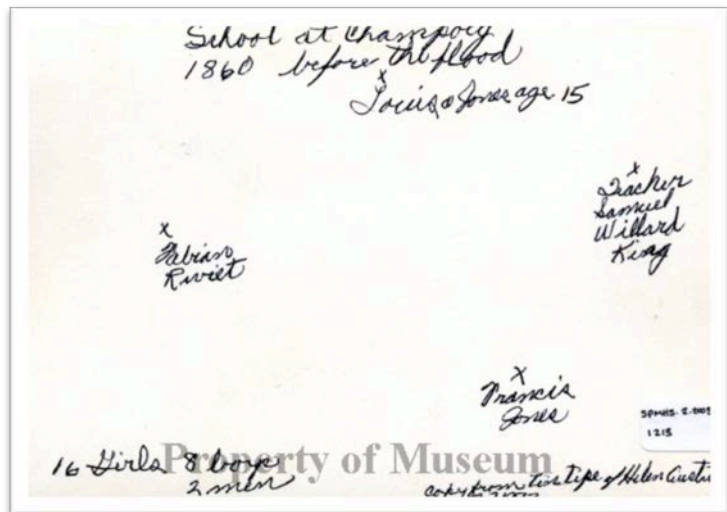 School at Champoeg
1860 before the flood
x
Louisa Jones age 15
x
Teacher
Samuel
Willard
King
x
Fabian
Riviet
x
Francis
Jones
SPMHS-2-2009
1213
16 Girls 8 boys
2 men
Property of Museum
copy from tin type of Helen Austin